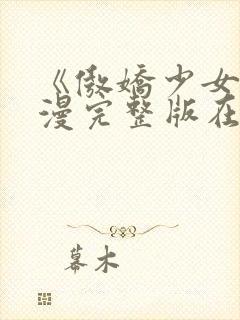 《傲娇少女
漫完整版在
幕木